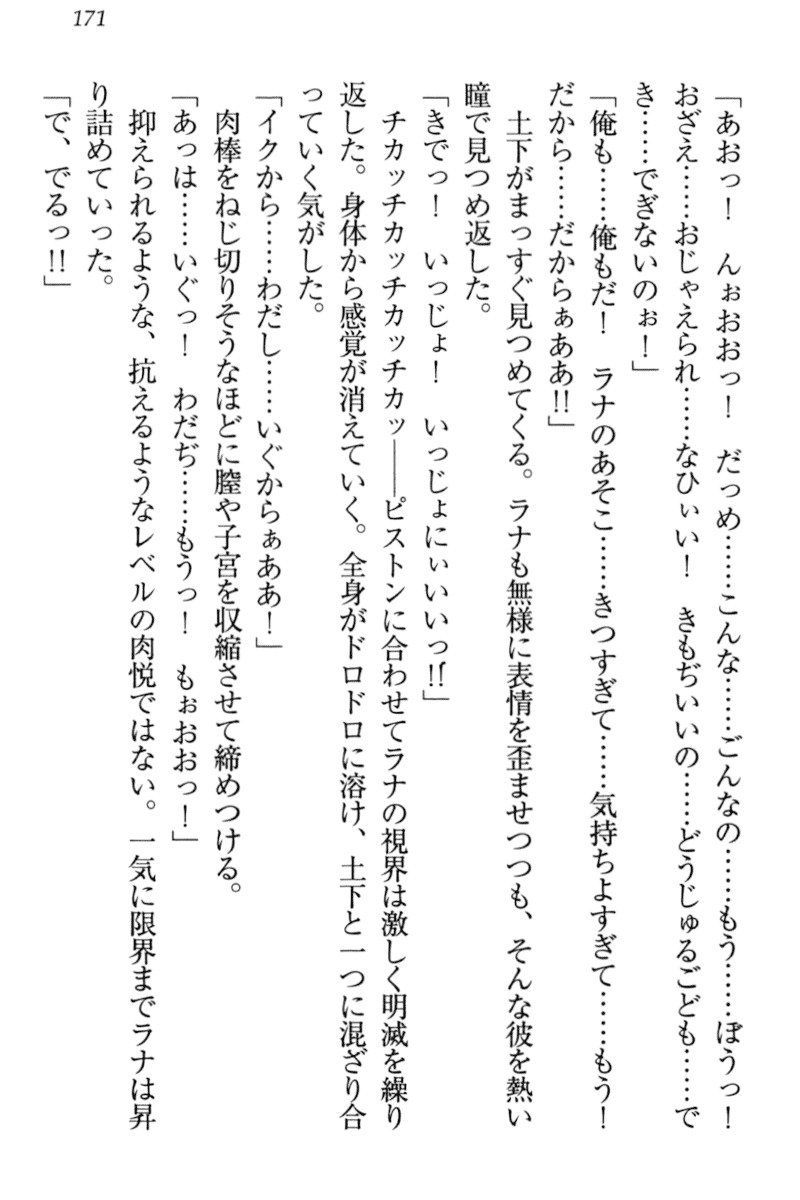 171
「あおっ！　んぉおおっ！　だっめ……こんな……ごんなの……もう……ぼうっ！
おざえ……おじゃえられ……なひぃい！　きもぢいいの……どうじゅるごども……で
き……でぎないのぉ！」
「俺も……俺もだ！　ラナのあそこ……きつすぎて……気持ちよすぎて……もう！
だから……だからぁああ!!」
　土下がまっすぐ見つめてくる。ラナも無様に表情を歪ませつつも、そんな彼を熱い
瞳で見つめ返した。
「きでっ！　いっじょ！　いっじょにぃいいっ!!」
　チカッチカッチカッチカッ――ピストンに合わせてラナの視界は激しく明滅を繰り
返した。身体から感覚が消えていく。全身がドロドロに溶け、土下と一つに混ざり合
っていく気がした。
「イクから……わだし……いぐからぁああ！」
　肉棒をねじ切りそうなほどに膣や子宮を収縮させて締めつける。
「あっは……いぐっ！　わだぢ……もうっ！　もぉおおっ！」
　抑えられるような、抗えるようなレベルの肉悦ではない。一気に限界までラナは昇
り詰めていった。
「で、でるっ!!」